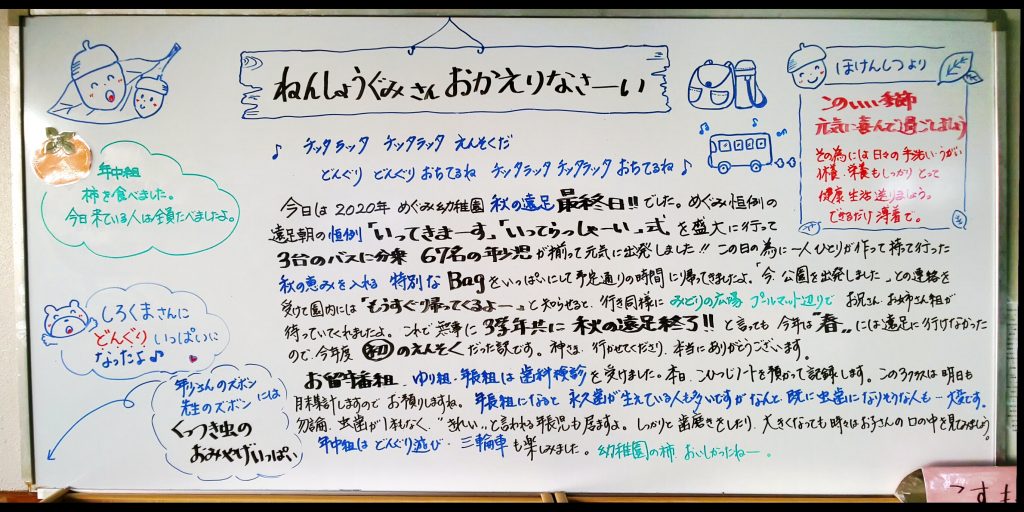 ねんしょうぐみさん おかえりなさーい
♪ チッタ ラッタ チッタラッタ えんそくだ
どんぐり どんぐり おちてるね チッタラッタ チッタラッタ おちてるね♪
今日は2020年 めぐみ幼稚園 秋の遠足 最終日!!でした。めぐみ恒例の
遠足朝の恒例「いってきまーす」「いってらっしゃーい」式を盛大に行って
3台のバスに分乗 67名の年少児が揃って元気に出発しました!! この日の為に一人ひとりが作って持って行った
秋の恵みを入れる 特別な Bagをいっぱいにして予定通りの時間に帰ってきましたよ。「今、公園を出発しました」との連絡を
受けて園内には「もうすぐ帰ってくるよー」と知らせると、行き同様に みどりの広場 プールマット辺りで お兄さん お姉さん組が
待っていてくれましたよ。これで無事に 3学年共に 秋の遠足終了!! と言っても今年は"春"には遠足に行けなかった
ので、今年度 初 のえんそくだった訳です。神さま、行かせてくださり、本当にありがとうございます。
お留守番組、ゆり組・年長組は歯科検診を受けました。本日、こひつじノートを預かって記録します。この3クラスは明日も
月末集計しますので お預りしますね。年長になると 永久歯が生えている人も多いですが なんと、既に虫歯になりそうな人も…大変です。
勿論、虫歯が1本もなく、"きれい"と言われる年長児も居ますよ。しっかりと歯磨きをしたり、大きくなっても時々はお子さんの口の中を見てみましょう。
年中組はどんぐり遊び・三輪車も楽しみました。幼稚園の柿、おいしかったねー。
年中組
柿を食べました。
今日来ている人は全員たべましたよ。
しろくまさんに
どんぐり いっぱいに
なったよ♪
年少さんのズボン
先生のズボンには
くっつき虫の
おみやげいっぱい
ほけんしつより
このいい季節
元気に喜んで過ごしましょう
その為には日々の手洗い・うがい
休養・栄養もしっかりとって
健康生活送りましょう。
できるだけ薄着で。